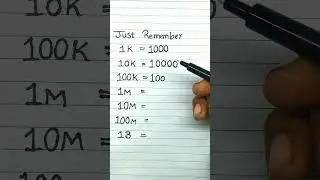 Just Remember
1K = 1000
10K = 10000
100K = 100
1M =
10M =
100M =
1B =
100K
1M
10M